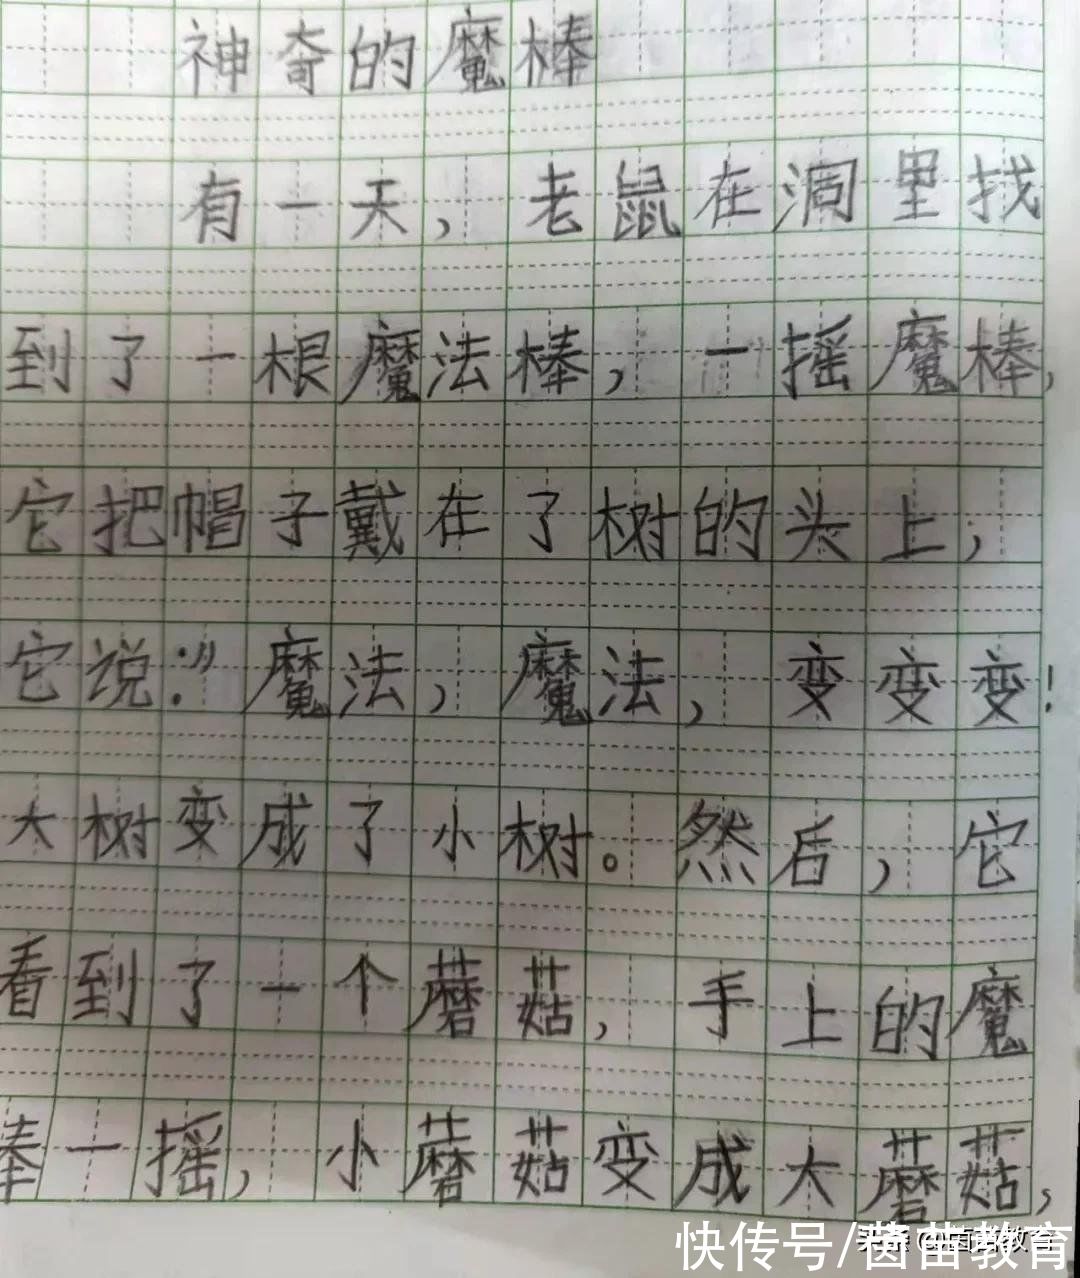 神奇的魔棒
有一天，老鼠在洞里找
到了一根魔法棒，一摇魔棒，
它把帽子戴在了树的头上，
它说：“魔法，魔法，变变变！
大树变成了小树。然后，它
看到了一个蘑菇，手上的魔
棒一摇，小蘑菇变成大蘑菇，
快传号/茵苗教育
头条 @茵苗教育